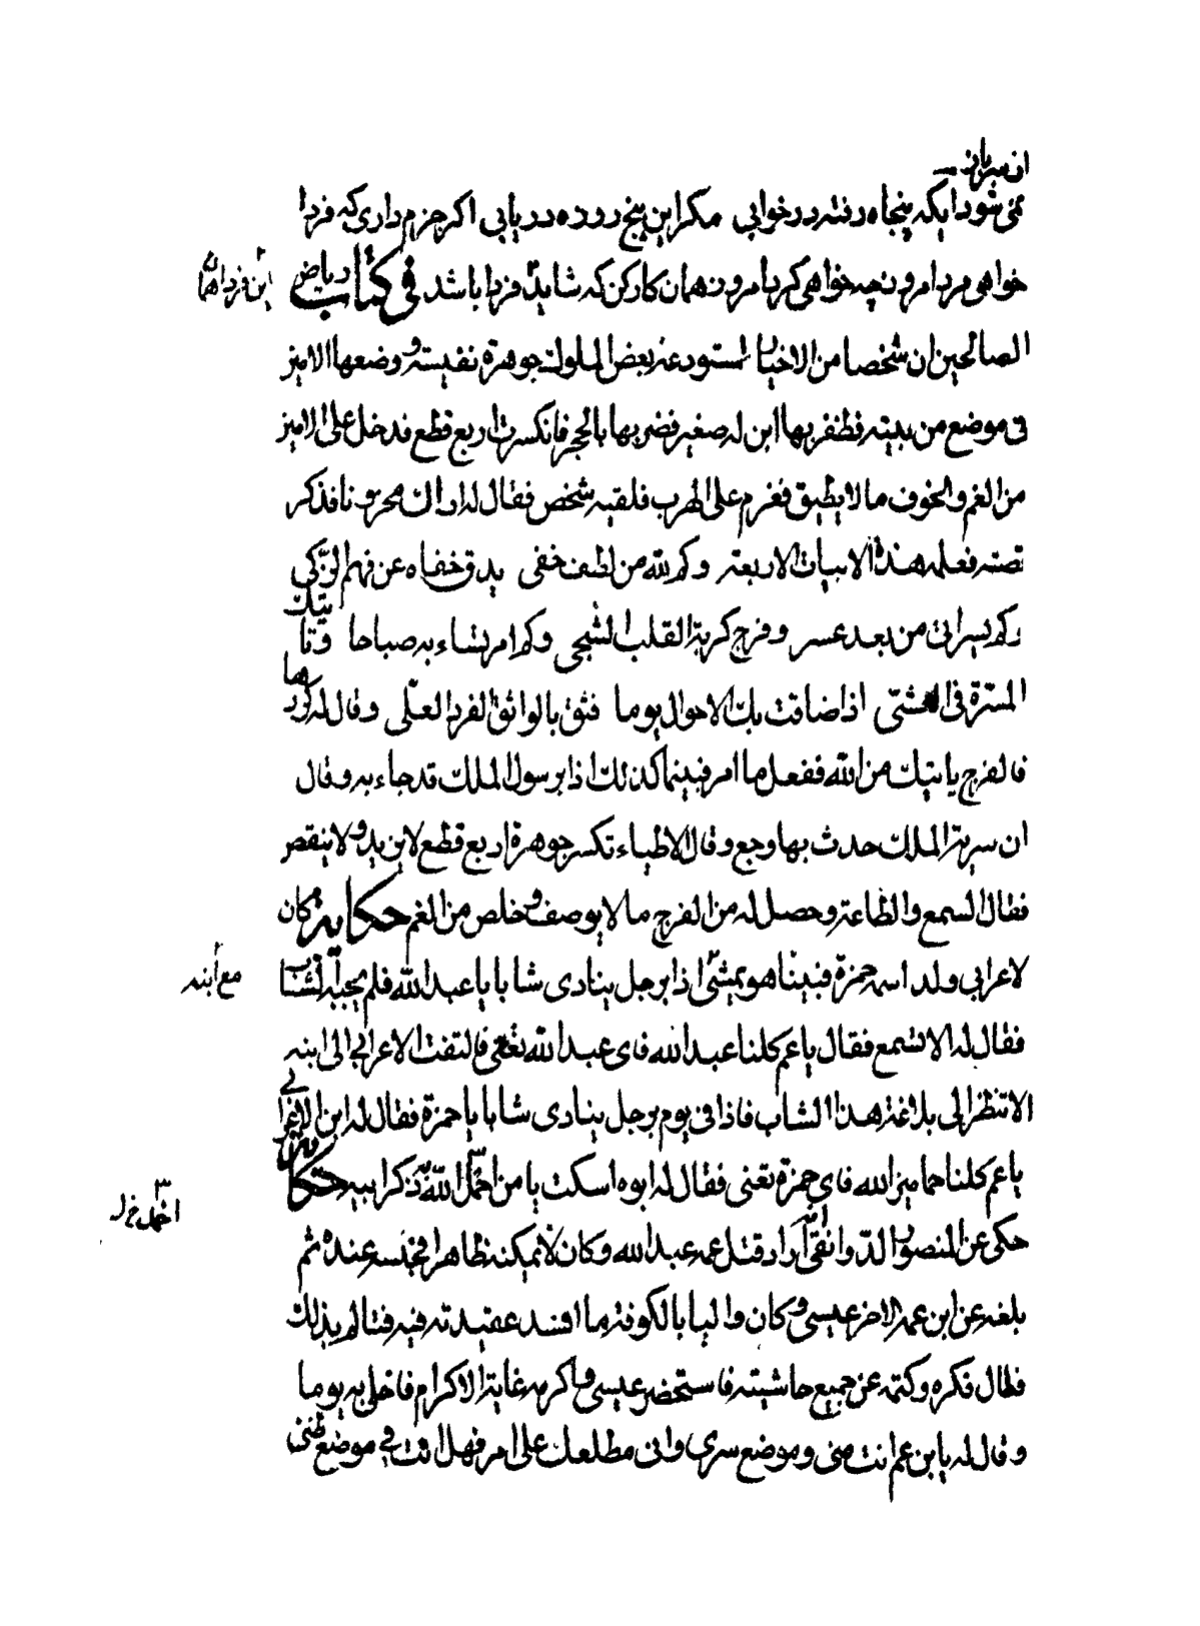 نمی شود ایکه پنجاه رفته در خوابی مکر این پنج روزه در یابی اکر جزم داری که فردا
خواهی مرد امروز چه خواهی کرد امروز همان کار کن که شاید فردا باشد فی کتاب ریاض
الصالحین ان شخصا من الاخیار استودعه بعض الملوک جوهرة نفیسة و وضعها الامیر
فی موضع من بیته فظفر بها ابن له صغیر فضربها بالحجر فانکسرت اربع قطع فدخل علی الامیر
من الغم والخوف ما لا یطیق فعزم علی الهرب فلقیه شخص فقال له اراک محزونا فذکر
قصته فعلمه هذه الابیات الاربعة وکم لله من لطف خفی یدق خفاه عن فهم الزکی
وکم یسر اتی من بعد عسر و فرج کربة القلب الشجی وکم امر تساء به صباحا وتاتیک
المسرة فی العشی اذا ضاقت بک الاحوال یوما فثق بالواثق الفرد العلی وقال له کررها
فالفرج یاتیک من الله ففعل ما امر فبینما کذلک اذا برسول الملک قد جاء به وقال
ان سریة الملک حدث بها وجع وقال الاطباء تکسر جوهرة اربع قطع لا یزید و لا ینقص
فقال السمع والطاعة وحصل له من الفرج ما لا یوصف و خلص من الغم حکایة کان
لاعرابی ولد اسمه حمزة فبینا هو یمشی اذا برجل ینادی شابا یا عبد الله فلم یجبه الشاب
مع ابنه
فقال له الا تسمع فقال یا عم کلنا عبد الله فای عبد الله تعنی فالتفت الاعرابی الی ابنه
الا تنظر الی بلاغة هذا الشاب فاذا فی یوم برجل ینادی شابا یا حمزة فقال له ابن الاعرابی
یا عم کلنا حمامیز الله فای حمزة تعنی فقال له ابوه اسکت یا من اخمل الله به ذکر ابیه حکایة
حکی عن المنصور الدوانقی انه اراد قتل عمه عبد الله وکان لا یمکنه ظاهرا فحبسه عنده ثم
بلغه عن ابن عمه الاخر عیسی و کان والیا بالکوفة ما افسد عقیدته فیه فتالم بذلک
فطال فکره وکتمه عن جمیع حاشیته فاستحضر عیسی و اکرمه غایة الاکرام فاخلی به یوما
وقال له یا بن عم انت منی وموضع سری وانی مطلعک علی امر فهل انت فی موضع ظنی